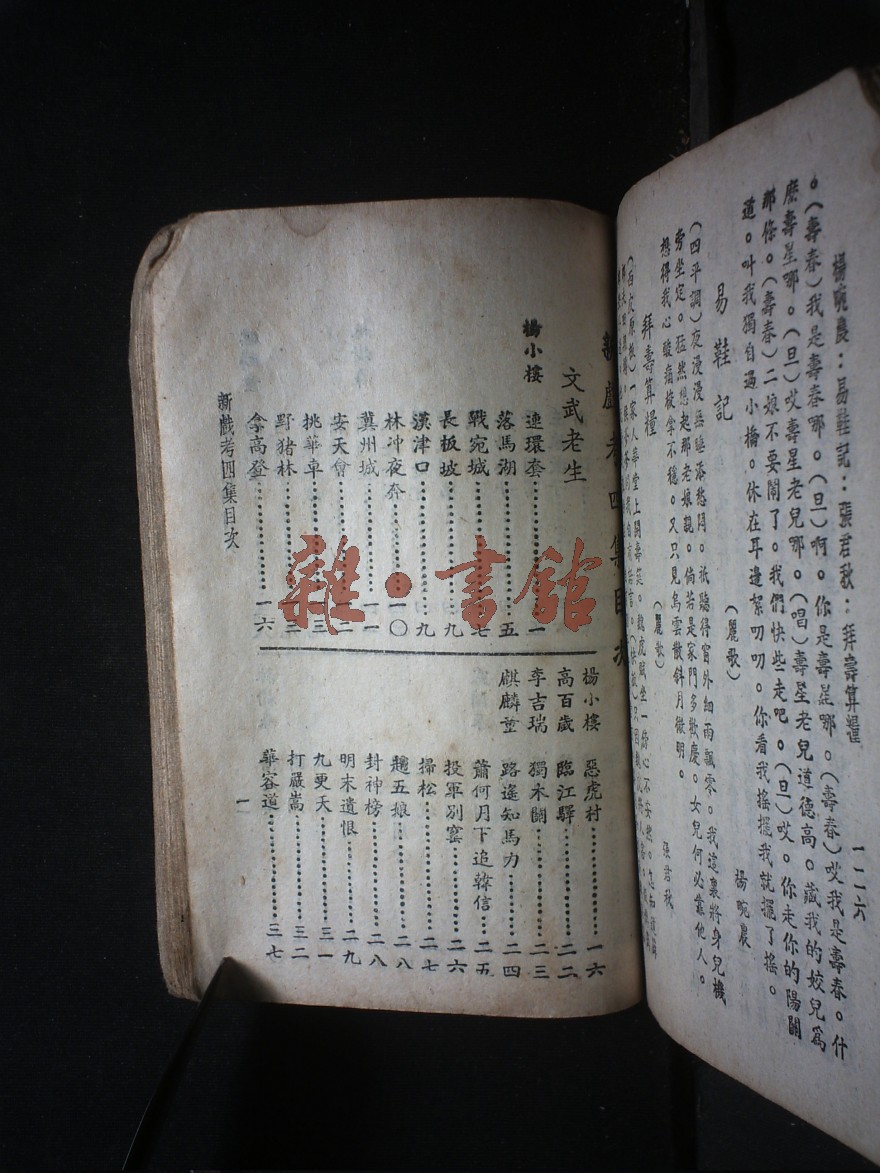 楊畹農：易鞋記：張君秋：拜壽算糧
一二六
。（壽春）我是壽春哪。（旦）啊。你是壽星哪。（壽春）哎我是壽春。什
麽壽星哪。（旦）哎壽星老兒哪。（唱）壽星老兒道德高。藏我的姣兒爲
那條。（壽春）二娘不要鬧了。我們快些走吧。（旦）哎。你走你的陽關
道。叫我獨自過小橋。休在耳邊絮叨叨。你看我搖擺我就擺了搖。
易鞋記
（麗歌）
楊畹農
（四平調）夜漫漫無睡添愁悶。祇聽得窗外細雨飄零。我這裏將身兒機
旁坐定。猛然想起那老娘親。倘若是家門多歡慶。女兒何必靠他人。
想得我心酸痛梭拿不穩。又只見烏雲散斜月微明。
拜壽算糧
（麗歌）
張君秋
新戲考四集目次
文武老生
楊小樓
連環套 一
落馬湖 五
戰宛城 七
長板坡 九
漢津口 九
林冲夜奔 一〇
冀州城 一一
安天會 一二
挑華車 一三
野猪林 一三
拿高登 一六
楊小樓 惡虎村 一六
高百歲 臨江驛 二二
李吉瑞 獨木關 二三
麒麟童 路遙知馬力 二四
蕭何月下追韓信 二五
投軍別窰 二六
掃松 二七
趙五娘 二八
封神榜 二八
明末遺恨 二九
九更天 三一
打嚴嵩 三二
華容道 三七
新戲考四集目次
一
雜·書館